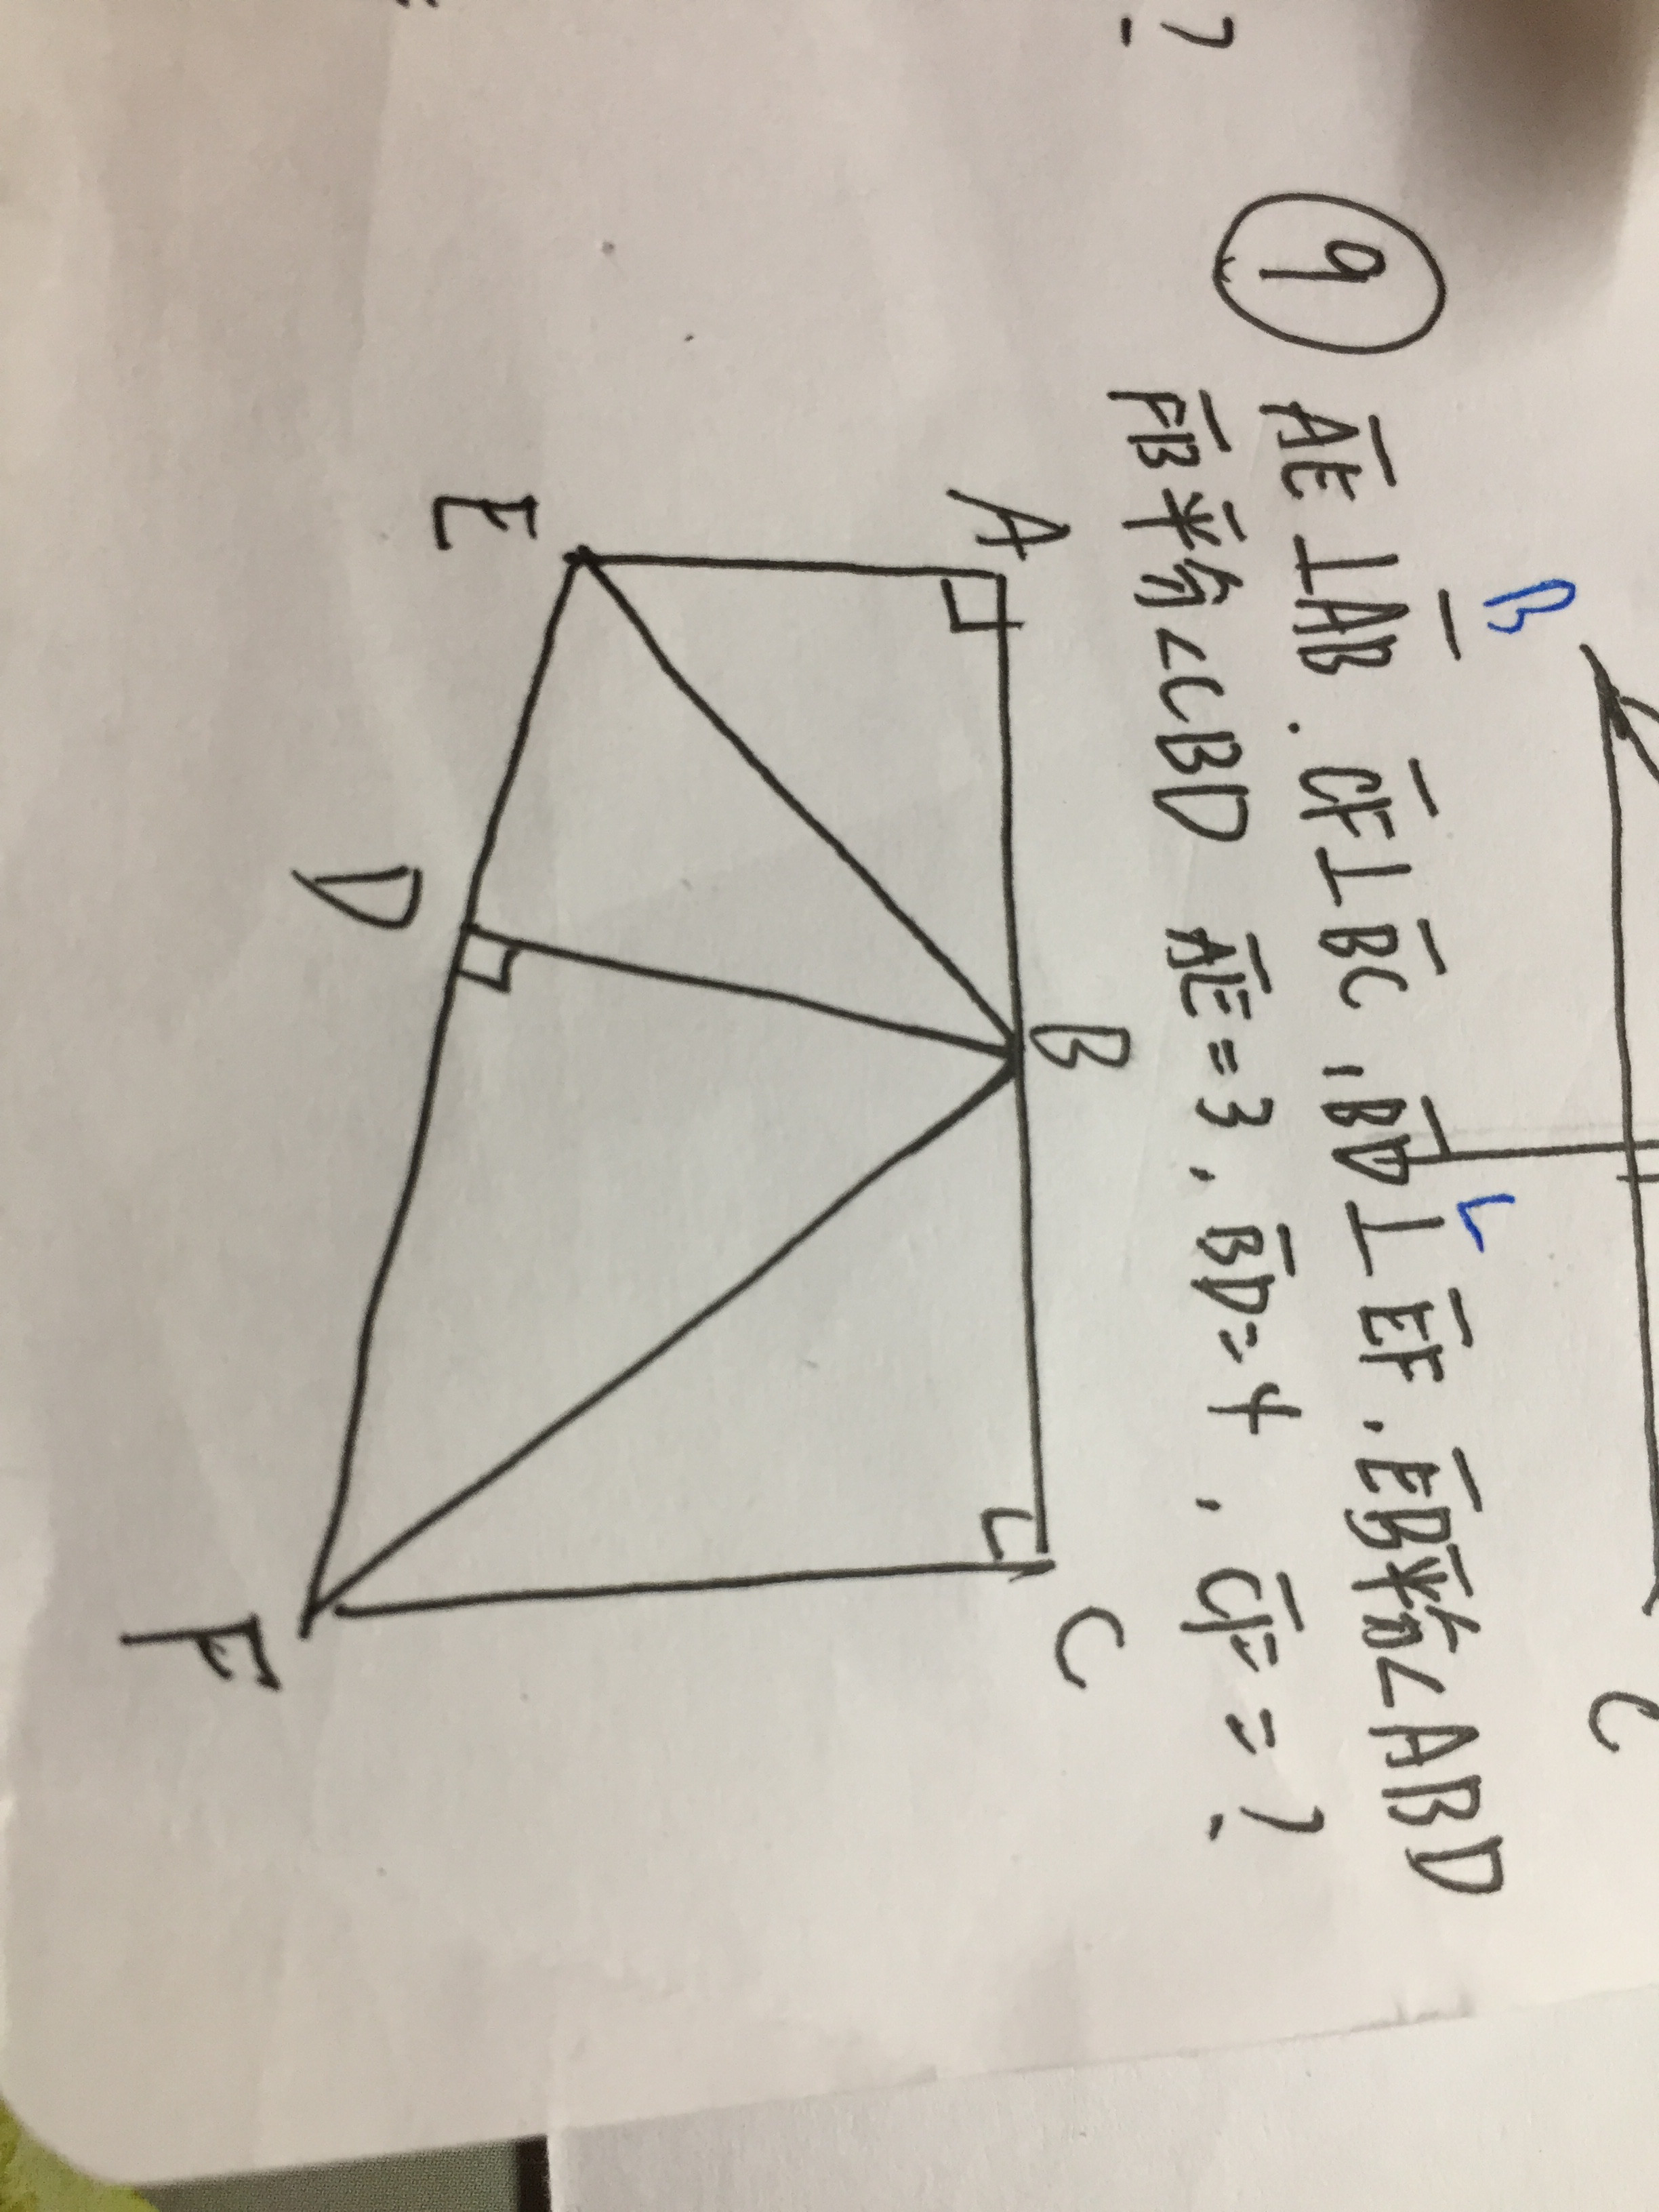 ?
B
L
C
⑨ A̅E̅⊥A̅B̅, C̅F̅⊥B̅C̅, B̅D̅⊥E̅F̅, E̅B̅平分∠ABD
F̅B̅平分∠CBD A̅E̅=3, B̅D̅=4, C̅F̅=?
A B C
E D F